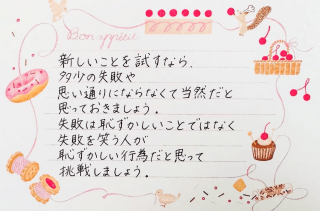 Bon appétit
新しいことを試すなら、
多少の失敗や
思い通りにならなくて当然だと
思っておきましょう。
失敗は恥ずかしいことではなく
失敗を笑う人が
恥ずかしい行為だと思って
挑戦しましょう。